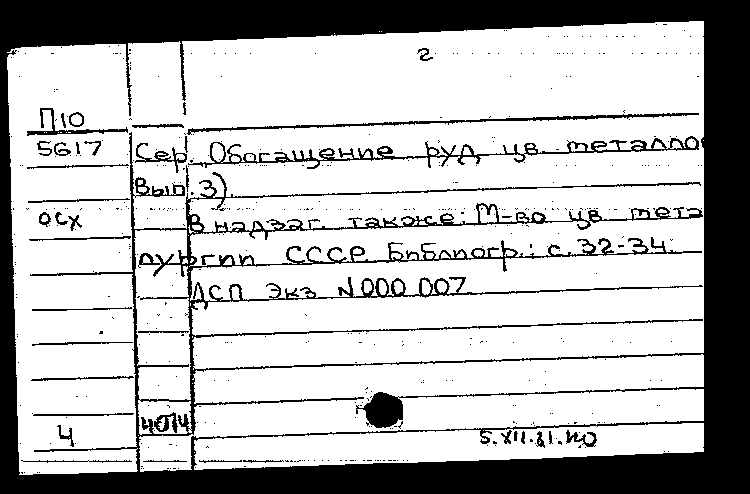 2
П10
5617 Сер. „Обогащение руд цв. металло
Вып. 3)
осх В надзаг. также: М-во цв. мета
лургии СССР. Библиогр.: с. 32-34.
ДСП Экз N000 007
4 4074
5.XII.81.